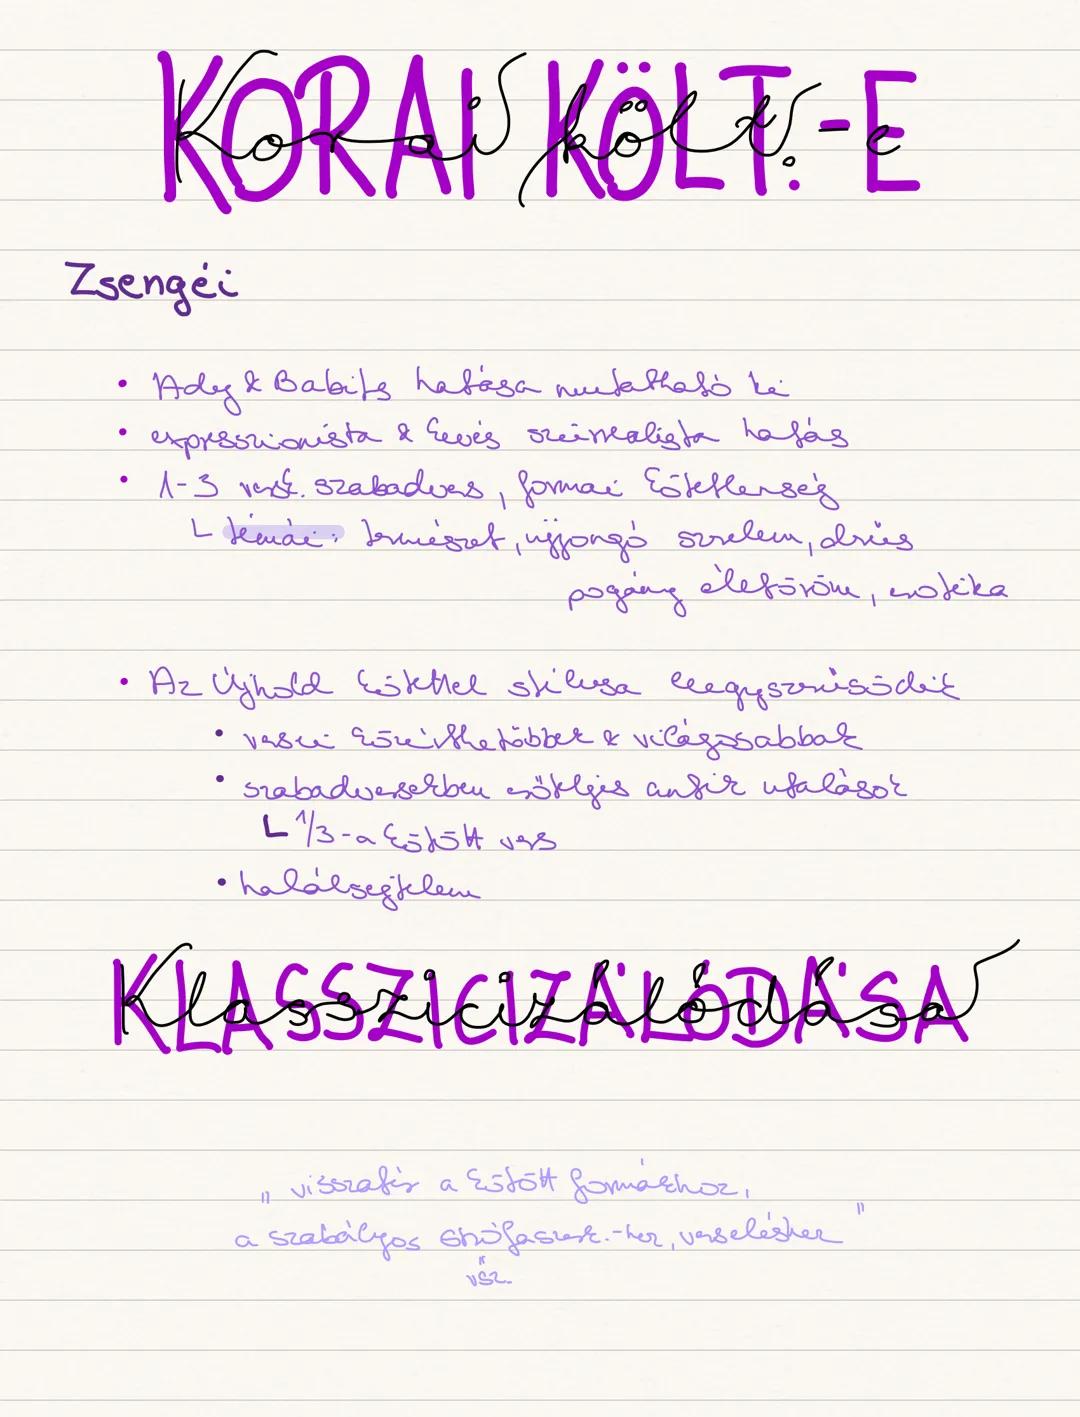 KORAI KÖLT.-E
Korai költ.-e
Zsengéi
• Ady & Babits hatása mutatható ki
• expresszionista & kevés szürrealista hatás
• 1-3 versk. szabadvers, formai kötetlenség
└ témái: természet, ujjongó szerelem, derűs
pogány életöröm, erotika
• Az Újhold kötettel stílusa leegyszerűsödik
• versei közérthetőbbek & világosabbak
• szabadversekben erőteljes antik utalások
└ 1/3-a kötött vers
• halálsejtelem
KLASSZICIZÁLÓDÁSA
Klasszicizálódása
„visszatér a kötött formákhoz,
a szabályos strófaszerk.-hez, verseléshez"
vsz.